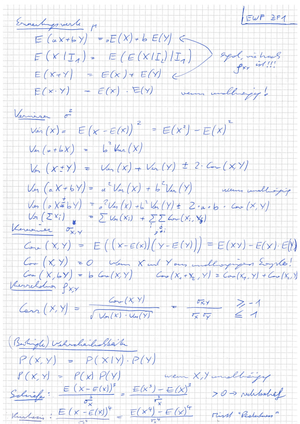 EWP ZF1
Erwartungswerte μ
E(aX+bY) = aE(X)+bE(Y)
E(X|I₁) = E(E(X|I₂)|I₁)
E(X+Y) = E(X)+E(Y)
E(X·Y) = E(X)·E(Y) wenn unabhängig!
Varianz σ²
Var(X) = E(X-E(X))² = E(X²)-E(X)²
Var(a+bX) = b² Var(X)
Var(X±Y) = Var(X)+Var(Y) ± 2·Cov(X,Y)
Var(aX+bY) = a² Var(X)+b² Var(Y) wenn unabhängig
Var(aX±bY) = a² Var(X)+b² Var(Y) ± 2·a·b·Cov(X,Y)
Var(Σxᵢ) = ΣVar(xᵢ)+ΣΣCov(xᵢ,xⱼ)
Kovarianz σx,y
Cov(X,Y) = E((X-E(X))(Y-E(Y))) = E(XY)-E(X)·E(Y)
Cov(X,Y) = 0 wenn X und Y
Cov(X,bY) = b Cov(X,Y) Cov(X₁+X₂,Y) = Cov(X₁,Y)+Cov(X₂,Y)
Korrelation ρX,Y
Corr(X,Y) = Cov(X,Y) / √(Var(X)·Var(Y)) = σxy / σx σy ≥ -1 ≤ 1
(Bedingte) Wahrscheinlichkeiten
P(X,Y) = P(X|Y)·P(Y)
P(X,Y) = P(X)·P(Y) wenn X,Y unabhängig
Schiefe: E(X-E(X))³ / σ³ = E(X³)-E(X)³ / σ³ > 0 → rechtsschief
Kurtosis: E(X-E(X))⁴ / σ⁴ = E(X⁴)-E(X)⁴ / σ⁴